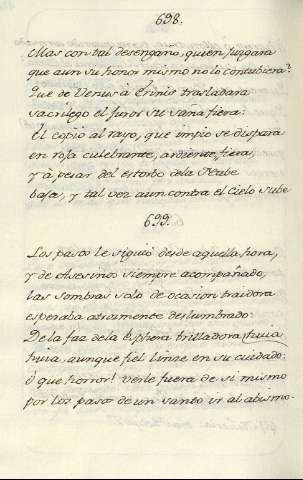 698.
Mas con tal desengaño, quien juzgara
que aun su honor mismo no lo contubiera?
Que de Venus à Erinis trasladara
sacrilego el furor su saña fiera:
el copió al rayo, que impio se dispara
en roja culebrante, ardiente, fiera,
y à pesar del estorbo dela Nube
baja, y tal vez aun contra el Cielo sube
699.
Los pasos le siguió desde aquella hora,
y de Asesinos siempre acompañado,
las sombras solo de ocasion traidora
esperaba atrozmente deslumbrado:
De la faz dela Esphera trilladora, huia
huia, aunque fiel lince en su cuidado:
ò que horror! verle fuera de si mismo
por los pasos de un santo ir al abismo.